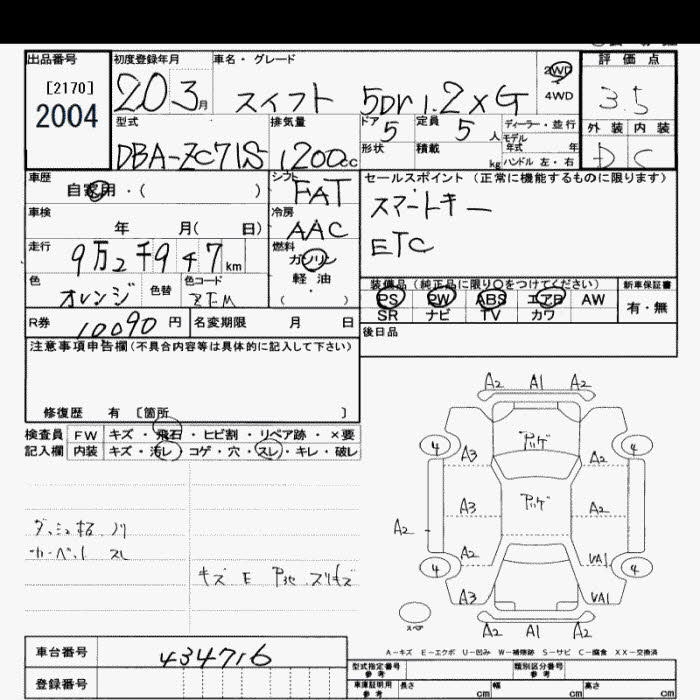 出品番号
[2170]
2004
初度登録年月
20 3月
車名・グレード
スイフト 5Dr 1.2×G
2WD
4WD
評価点
3.5
外装 内装
D C
型式
DBA-ZC71S
排気量
1200cc
ドア 5
定員 5人
ディーラー・並行
モデル年式 年
形状
積載 kg
ハンドル 左・右
車歴
自家用・( )
シフト
FAT
セールスポイント (正常に機能するものに限ります)
スマートキー
ETC
車検
年 月( 日)
冷房
AAC
走行
9万2千947km
燃料
ガソリン
軽油
( )
色
オレンジ
色替
色コード
装備品 (純正品に限り○をつけてください)
PS PW ABS エアB AW
SR ナビ TV カワ
新車保証書
有・無
R券
10090円
名変期限 月 日
後日品
注意事項申告欄(不具合内容等は具体的に記入して下さい)
修復歴 有 〔箇所 〕
検査員記入欄
FW キズ・飛石・ヒビ割・リペア跡・×要
内装 キズ・汚レ・コゲ・穴・スレ・キレ・破レ
カーペット スレ
キズ E
スリキズ
A2 A1 A2
4 4
A3 アリゲ A2
A3 アリゲ A2
A2
A2 VA1
4 4
A3 VA1
スペア
A2 A1 A2
A-キズ E-エクボ U-凹み W-補修跡 S-サビ C-腐食 XX-交換済
車台番号
434716
登録番号
型式指定番号 参考
類別区分番号 参考
車庫証明用 参考
長さ cm
幅 cm
高さ cm